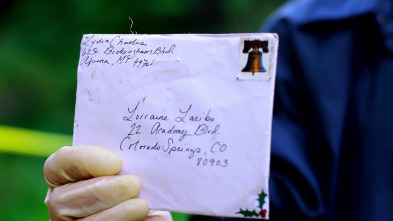 Lydia Charles
Buckingham Blvd.
Alpena, MI
Lorraine Laribo
22 Academy Blvd.
Colorado Springs, CO
80903